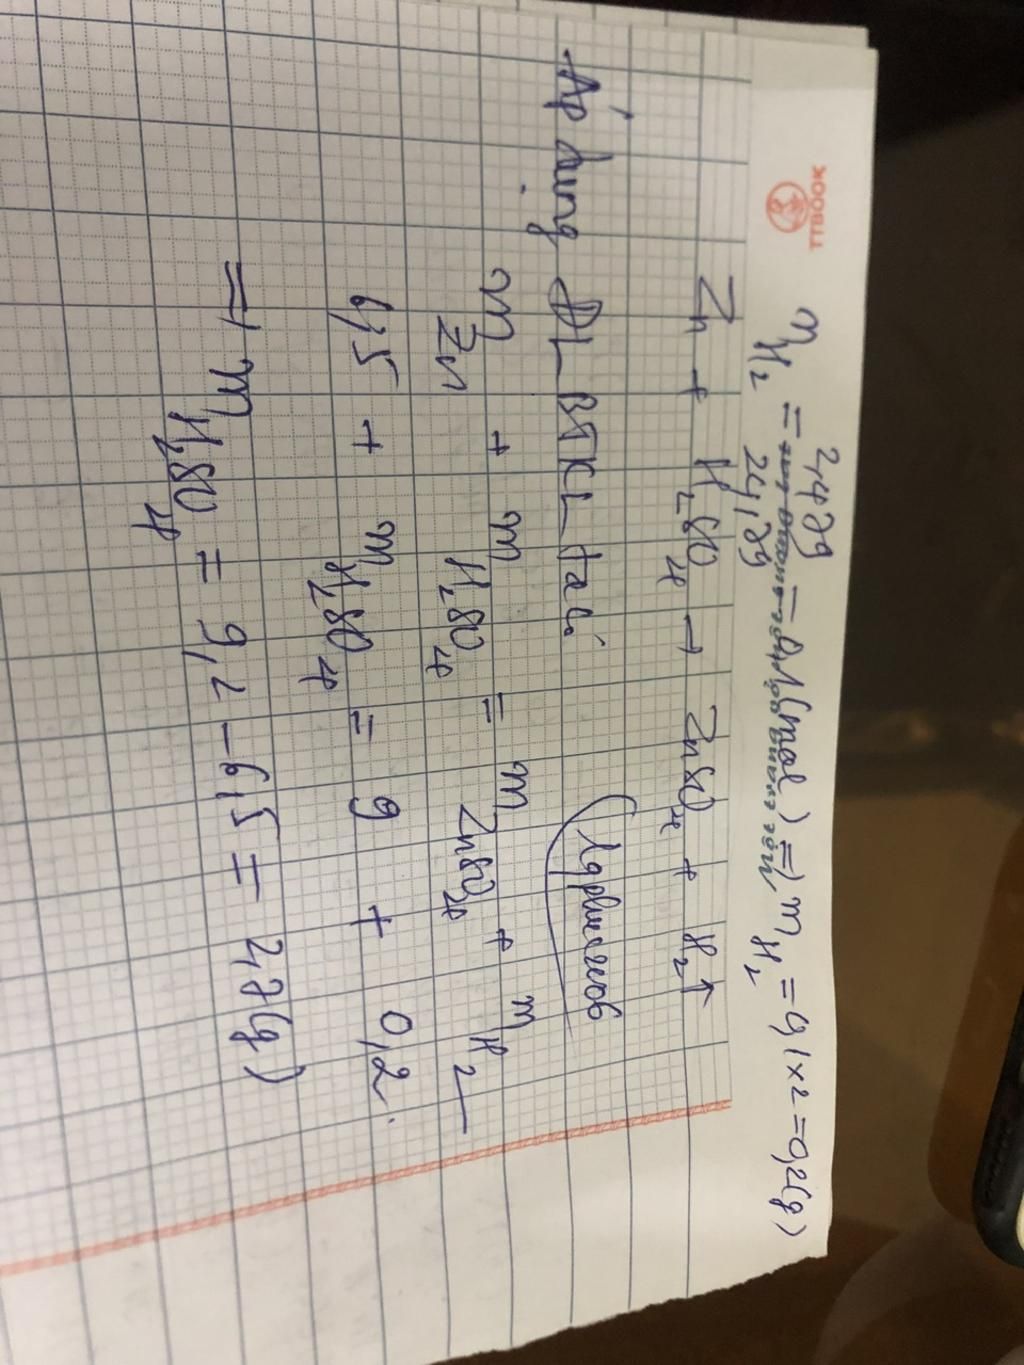 TTBOOK
m H2 = 2,479 / 24,79 = 0,1 (mol) => m H2 = 0,1 x 2 = 0,2 (g)
Zn + H2SO4 → ZnSO4 + H2↑
Áp dụng ĐL BTKL ta có
m Zn + m H2SO4 = m ZnSO4 + m H2
6,5 + m H2SO4 = 9 + 0,2.
=> m H2SO4 = 9,2 - 6,5 = 2,7 (g)